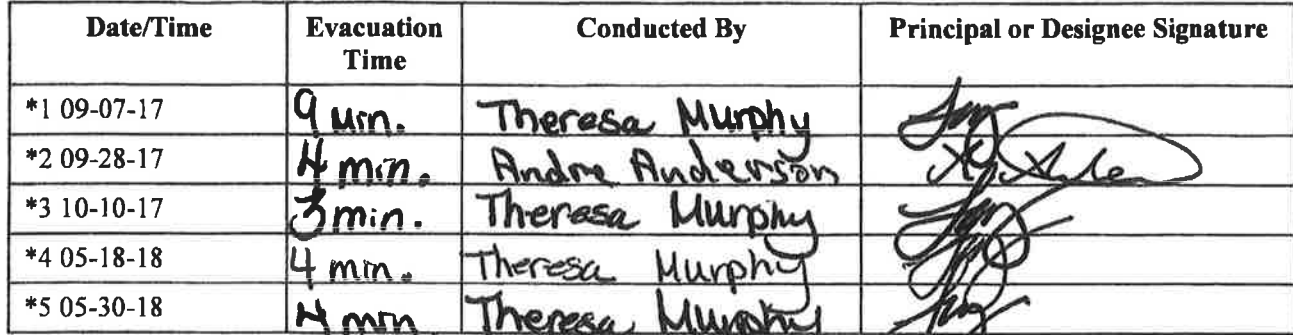 Date/Time Evacuation Time Conducted By Principal or Designee Signature
*1 09-07-17 9 min. Theresa Murphy
*2 09-28-17 4 min. Andre Anderson
*3 10-10-17 3 min. Theresa Murphy
*4 05-18-18 4 min. Theresa Murphy
*5 05-30-18 4 min Theresa Murphy